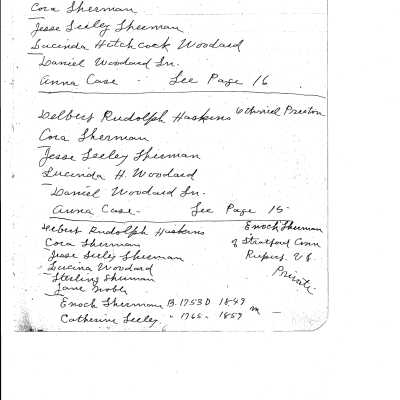 Cora Sherman
Jesse Seeley Sherman
Lucinda Hitchcock Woodard
Daniel Woodard Sr.
Anna Case - See Page 16
Delbert Rudolph Haskins
Cora Sherman
Jesse Seeley Sherman
Lucinda H. Woodard
Daniel Woodard Sr.
Anna Case - See Page 15
Delbert Rudolph Haskins Enoch Sherman
Cora Sherman of Stratford Conn
Jesse Seeley Sherman Rupert Vt
Lucina Woodard Private
Sterling Sherman
Jane Noble
Enoch Sherman B. 1753 D 1849
Catherine Seeley " 1765 - 1859 m -